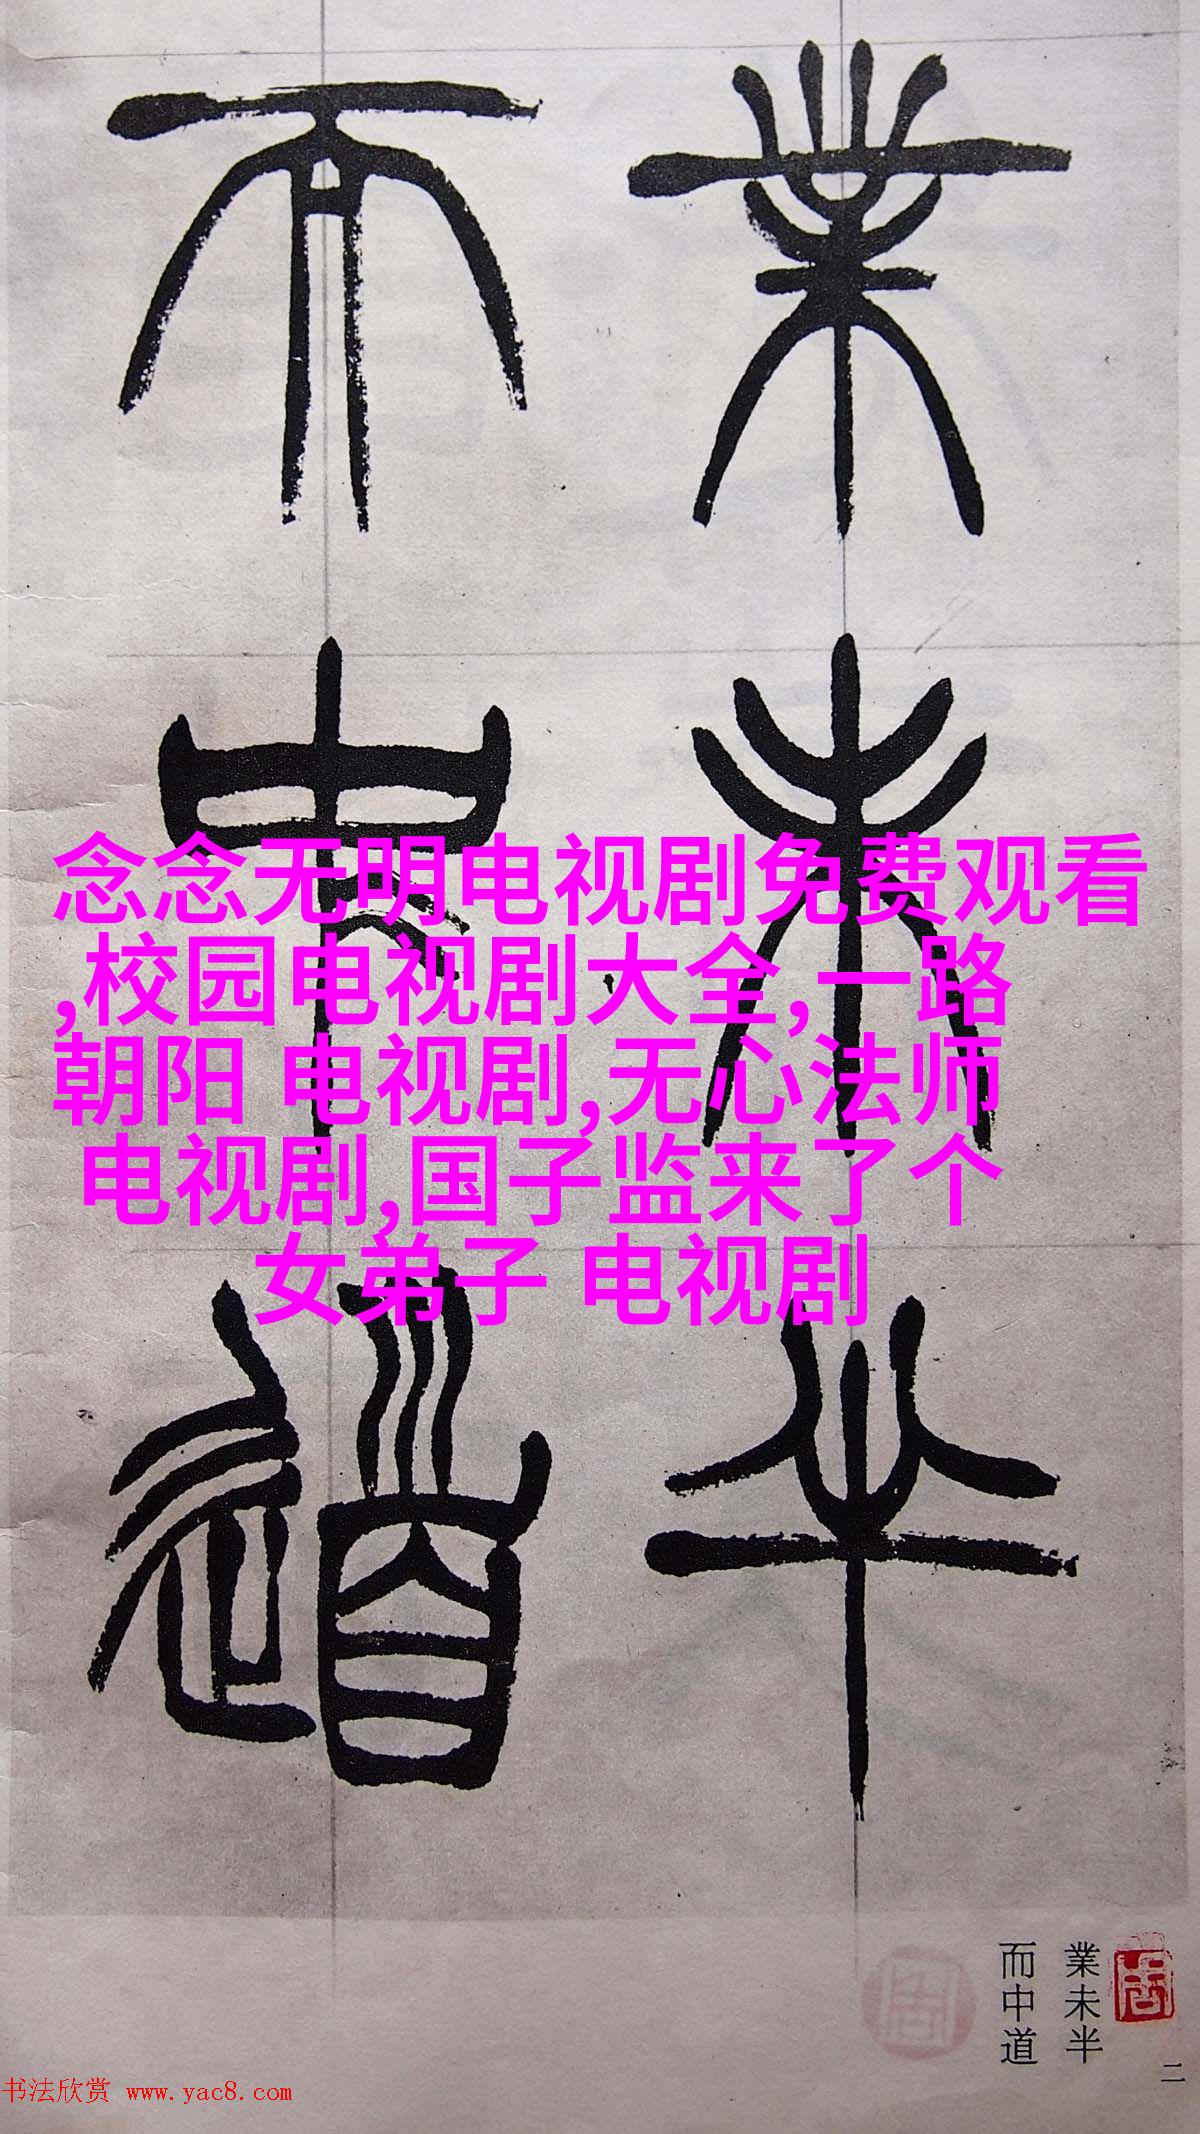 業未半
而中道
念念无明电视剧免费观看
,校园电视剧大全,一路
朝阳 电视剧,无心法师
电视剧,国子监来了个
女弟子 电视剧
業未半
而中道
二
书法欣赏 www.yac8.com